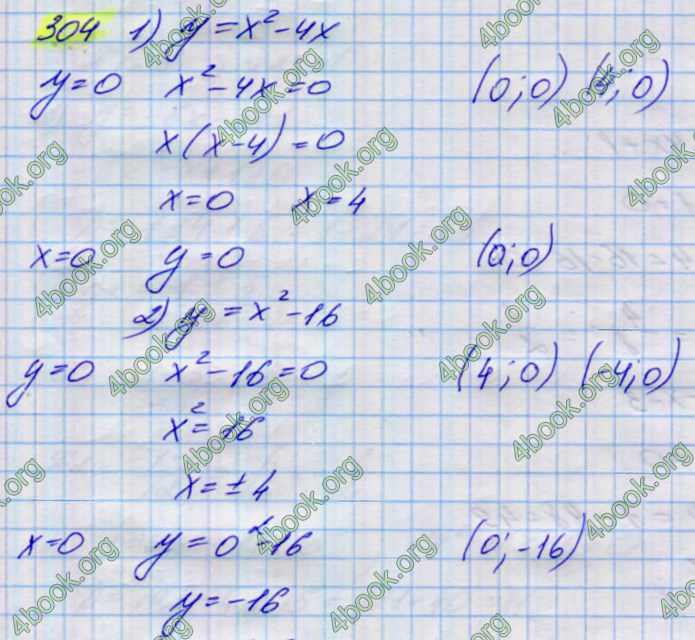 304 1) y = x² - 4x
y = 0 x² - 4x = 0 (0; 0) (4; 0)
x(x - 4) = 0
x = 0 x = 4
x = 0 y = 0 (0; 0)
2) y = x² - 16
y = 0 x² - 16 = 0 (4; 0) (-4; 0)
x² = 16
x = ± 4
x = 0 y = 0² - 16 (0; -16)
y = -16
4book.org